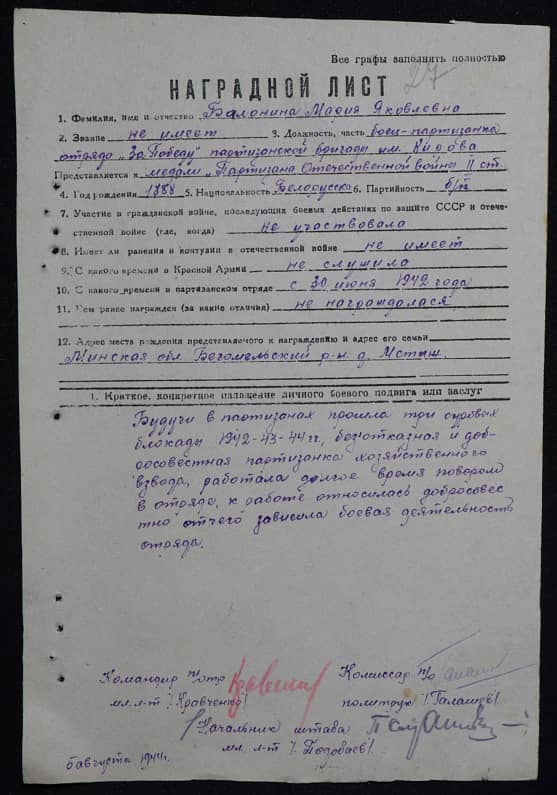 Все графы заполнять полностью
27
НАГРАДНОЙ ЛИСТ
1. Фамилия, имя и отчество Балонина Мария Яковлевна
2. Звание не имеет 3. Должность, часть боец-партизанка
отряда "За Победу" партизанской бригады им. Кирова
Представляется к медали "Партизана Отечественной войны II ст.
4. Год рождения 1888 5. Национальность Белоруска 6. Партийность б/п
7. Участие в гражданской войне, последующих боевых действиях по защите СССР и отече-
ственной войне (где, когда) не участвовала
8. Имеет ли ранения и контузии в отечественной войне не имеет
9. С какого времени в Красной Армии не служила
10. С какого времени в партизанском отряде с 30 июня 1942 года
11. Чем ранее награжден (за какие отличия) не награждалася
12. Адрес места рождения представляемого к награждению и адрес его семьи
Минская обл. Бегомельский р-н. д. Мстыж.
1. Краткое, конкретное изложение личного боевого подвига или заслуг
Будучи в партизанах прошла три суровых
блокады 1942-43-44 гг, безотказная и доб-
росовестная партизанка хозяйственного
взвода, работала долгое время поваром
в отряде, к работе относилась добросовес
тно отчего зависила боевая деятельность
отряда.
Командир п/отр Комиссар п/о
мл. л-т /Кравченко/ политрук /Галашев/
Начальник штаба
мл. л-т /. Подобаев/
6 августа 1944 г.